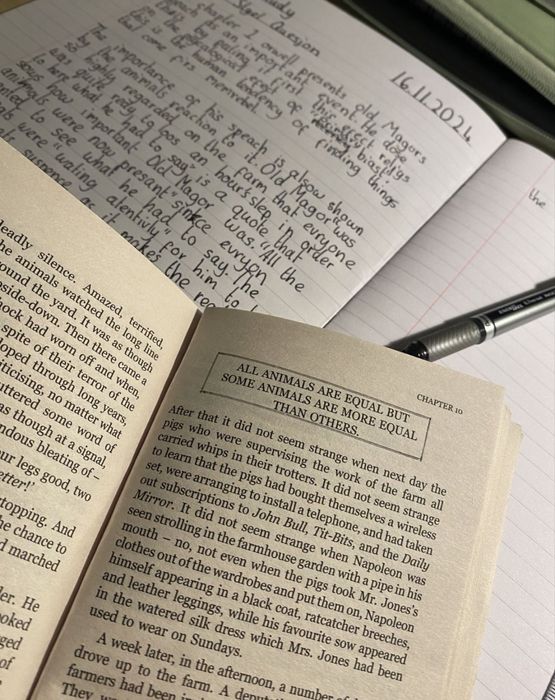 Study
Question
16.11.2024
chapter 1, orwell presents old Magors
speach as an important event. He dose
this by eating it first this effect relys
on the human tendency of
finding things
that come firs
The importance of his speach is allow shown
by the animals reaction to it. Old Magor "was
so highly regarded on the farm that euryone
was quite ready to loos an hour's slep in order
to here what he had to say" is a quote that
shows how important Old Magor was. "All the
animals were now presant" sinkce euryon
wanted to see what he had to say the
were "waiting alentivly" for him to
suspence as it makes the
the
deadly silence. Amazed, terrified,
the animals watched the long line
round the yard. It was as though
upside-down. Then there came a
shock had worn off and when,
spite of their terror of the
loped through long years,
criticising, no matter what
uttered some word of
as though at a signal,
ndous bleating of –
our legs good, two
etter!'
stopping. And
he chance to
d marched
ler. He
ooked
ged
of
CHAPTER 10
ALL ANIMALS ARE EQUAL BUT
SOME ANIMALS ARE MORE EQUAL
THAN OTHERS.
After that it did not seem strange when next day the
pigs who were supervising the work of the farm all
carried whips in their trotters. It did not seem strange
to learn that the pigs had bought themselves a wireless
set, were arranging to install a telephone, and had taken
out subscriptions to John Bull, Tit-Bits, and the Daily
Mirror. It did not seem strange when Napoleon was
seen strolling in the farmhouse garden with a pipe in his
mouth – no, not even when the pigs took Mr. Jones's
clothes out of the wardrobes and put them on, Napoleon
himself appearing in a black coat, ratcatcher breeches,
and leather leggings, while his favourite sow appeared
in the watered silk dress which Mrs. Jones had been
used to wear on Sundays.
A week later, in the afternoon, a number of
drove up to the farm. A
farmers had been
They